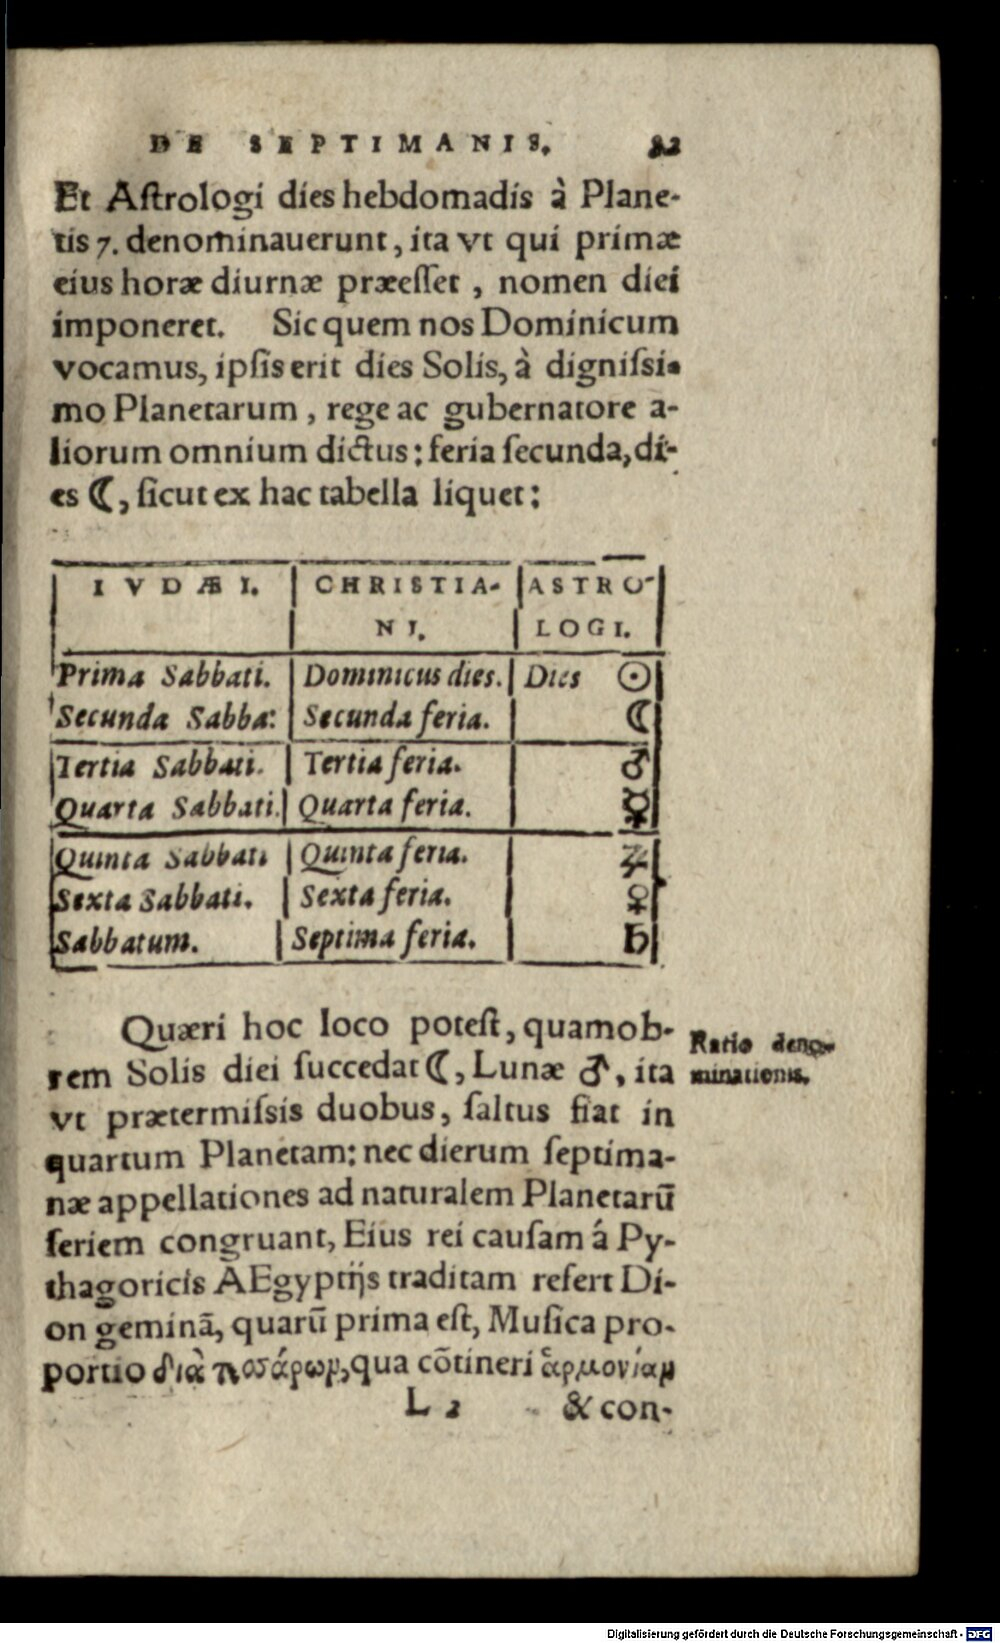 DE SEPTIMANIS. 82
Et Aſtrologi dies hebdomadis à Plane-
tis 7. denominauerunt, ita vt qui primæ
eius horæ diurnæ præeſſet, nomen diei
imponeret. Sic quem nos Dominicum
vocamus, ipſis erit dies Solis, à digniſsi-
mo Planetarum, rege ac gubernatore a-
liorum omnium dictus: feria ſecunda, di-
es ☾, ſicut ex hac tabella liquet:
IVDÆI. | CHRISTIA- | ASTRO-
NI. | LOGI.
Prima Sabbati. | Dominicus dies. | Dies ☉
Secunda Sabba: | Secunda feria. | ☾
Tertia Sabbati. | Tertia feria. | ♂
Quarta Sabbati. | Quarta feria. | ☿
Quinta Sabbati | Quinta feria. | ♃
Sexta Sabbati. | Sexta feria. | ♀
Sabbatum. | Septima feria. | ♄
Quæri hoc loco poteſt, quamob-
rem Solis diei ſuccedat ☾, Lunæ ♂, ita
vt prætermiſsis duobus, ſaltus fiat in
quartum Planetam: nec dierum ſeptima-
næ appellationes ad naturalem Planetarū
ſeriem congruant, Eius rei cauſam á Py-
thagoricis AEgyptijs traditam refert Di-
on geminā, quarū prima eſt, Muſica pro-
portio διὰ τεσάρων, qua cōtineri ἁρμονίαν
L 2 & con-
Ratio deno-
minationis.
Digitalisierung gefördert durch die Deutsche Forschungsgemeinschaft - DFG